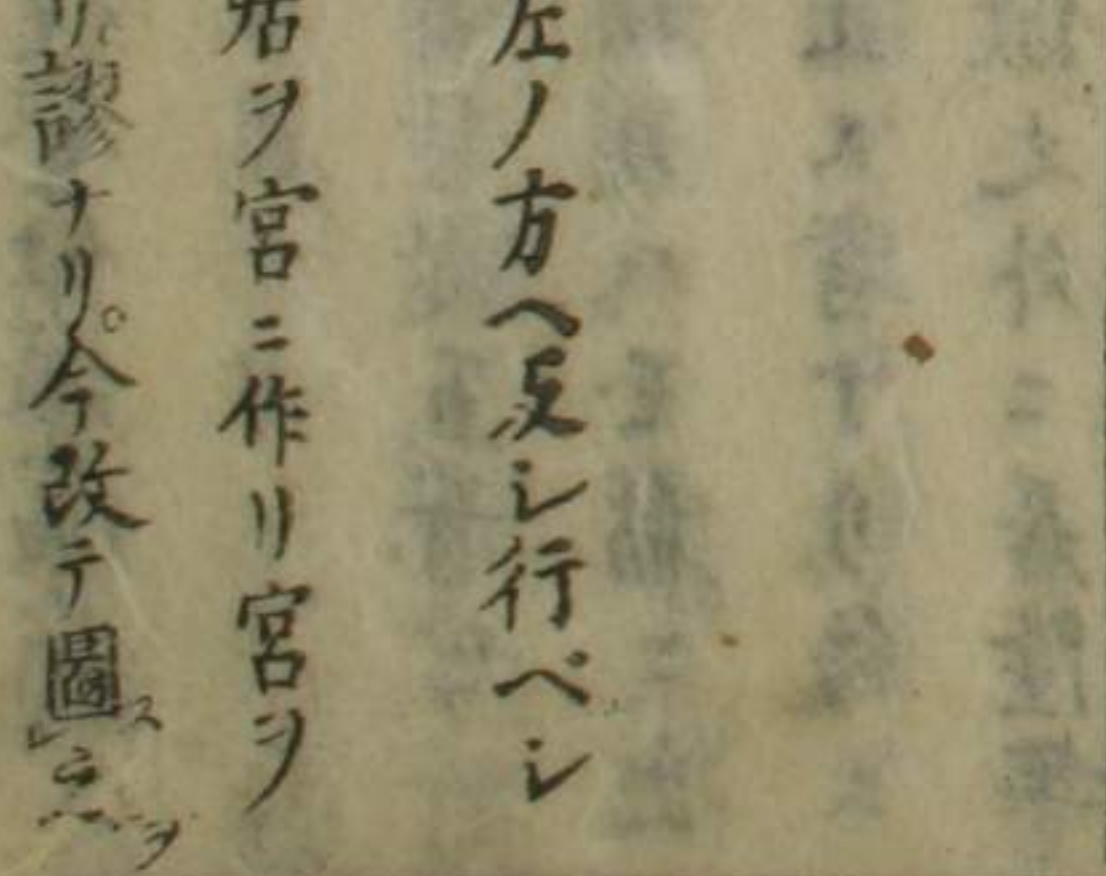 左ノ方ヘ反シ行ベシ
居ヲ宮ニ作リ宮ヲ
リ謬ナリ。今改テ圖ス